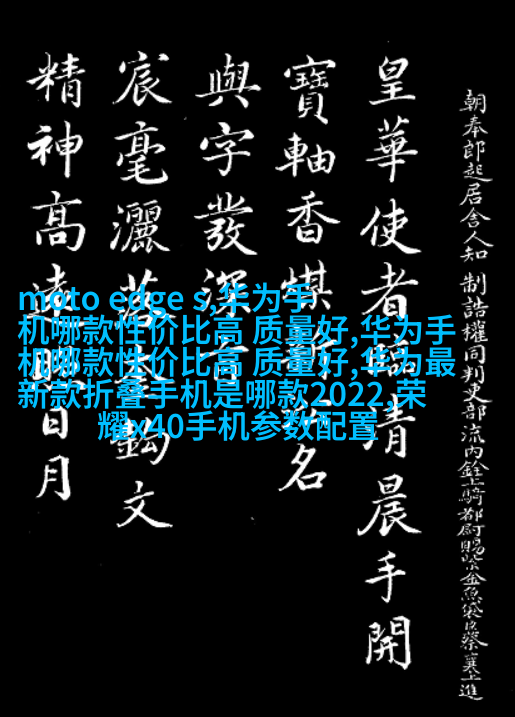 朝奉郎起居舍人知 制誥權同判吏部流内銓上騎都尉賜紫金魚袋臣蔡襄上進
皇華使者臨清晨手開
寶軸香煤新名
與字發深
宸毫灑落奎鈎文
精神高遠照日月
moto edge s,华为手
机哪款性价比高 质量好,华为手
机哪款性价比高 质量好,华为最
新款折叠手机是哪款2022,荣
耀x40手机参数配置